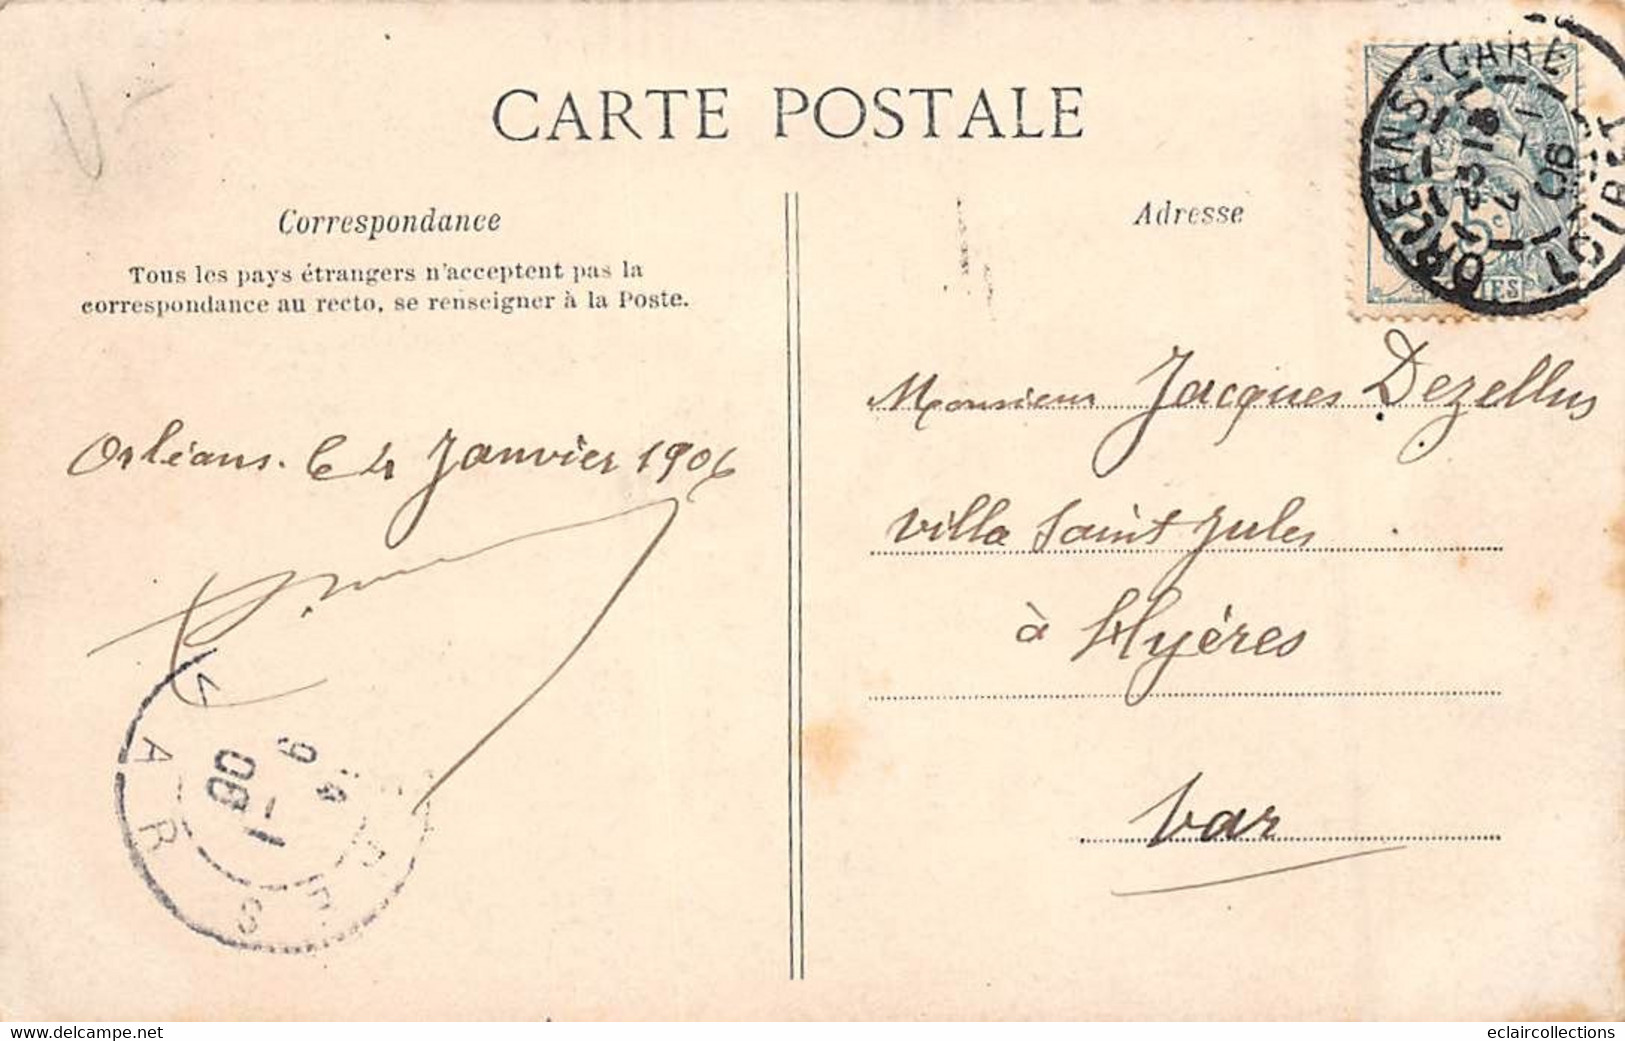 CARTE POSTALE
Correspondance
Tous les pays étrangers n'acceptent pas la
correspondance au recto, se renseigner à la Poste.
Orléans. le 4 Janvier 1906
Adresse
ORLEANS-GARE
LOIRET
5c
Monsieur Jacques Dezellus
villa Saint Jules
à Hyères
Var
VAR
06
eclaircollections